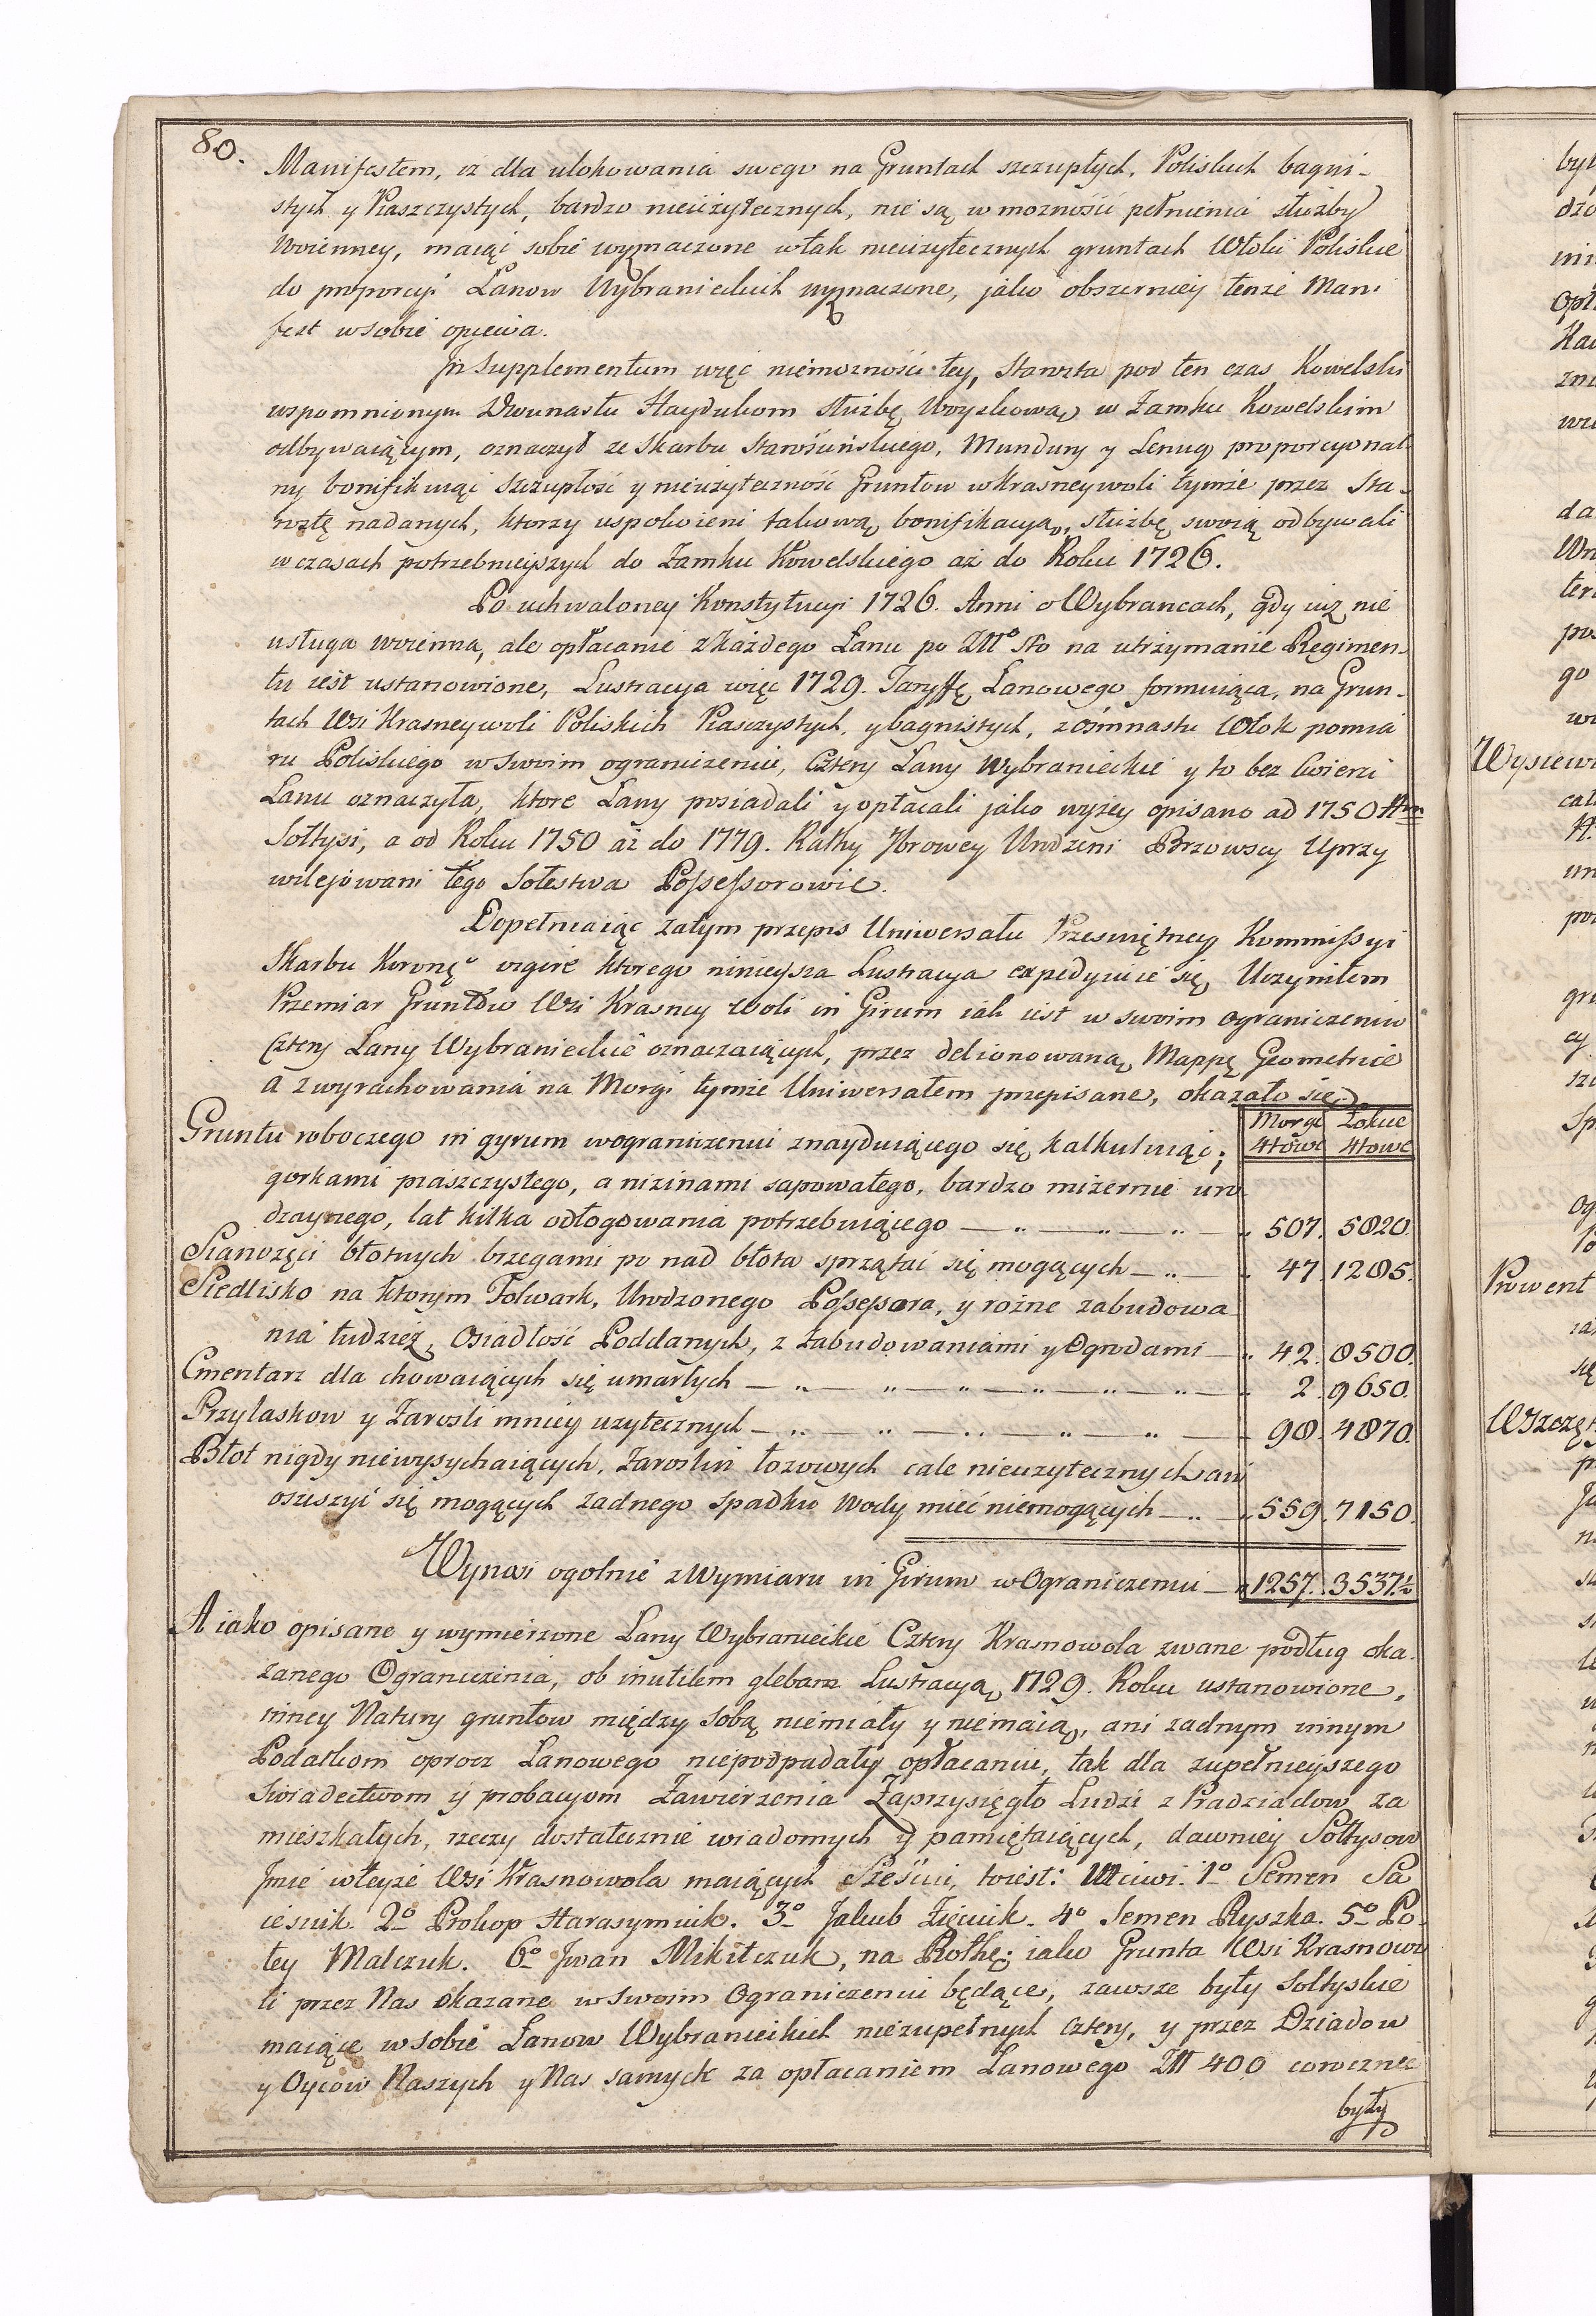 80.
Manifestem, iz dla ulokowania swego na Gruntach szczupłych, Poliskich bagni-
stych y Piaszczystych, bardzo nieużytecznych, nie są w mozności pełnienia służby
Woienney, maiąć sobie wyznaczone w tak nieużytecznych gruntach Włoki Poliskie
do proporcyi Łanow Wybranieckich wyznaczone, jako obszerniey tenże Mani
fest w sobie opiewa.
In Supplementum więc niemozności tey, Starosta pod ten czas Kowelski
wspomnionym Dwunastu Haydukom służbę Woyskową, w Zamku Kowelskim
odbywaiącym, oznaczył ze Skarbu Starościńskiego, Mundury y Lenug proporcyonal
ny bonifikuiąc szczupłość y nieużyteczność Gruntow w Krasneywoli tymże przez Sta-
rostę nadanych, ktorzy uspokoieni takową bonifikacyą, służbę swoią odbywali
w czasach potrzebnieyszych do Zamku Kowelskiego aż do Roku 1726.
Po uchwaloney Konstytucyi 1726. Anni o Wybrancach, gdy iuż nie
usługa woienna, ale opłacanie z każdego Łanu po Złto sto na utrzymanie Regimen-
tu iest ustanowione, Lustracya więc 1729. Taryffę Łanowego formuiąca, na Grun-
tach Wsi Krasneywoli Poliskich Piasczystych, y bagnistych, z ośmnastu Włok pomia
ru Poliskiego w swoim ograniczeniu, Cztery Łany Wybranieckie y to bez ćwierci
Łanu oznaczyła, ktore Łany posiadali y opłacali jako wyżey opisano ad 1750 Ann
Sołtysi, a od Roku 1750 aż do 1779. Ratky Jbrowey Urodzeni Brzowscy Uprzy
wilejowani tego Sołestwa Possessorowie.
Dopełniaiąc zatym przepis Uniwersału Przeświętney Kommissyi
Skarbu Koronę vigore ktorego ninieysza Lustracya expedyuie się, Uczyniłem
Przemiar Gruntów Wsi Krasney woli in Girum iak iest w swoim ograniczeniu
Cztery Łany Wybranieckie oznaczaiących, przez delionowaną Mappę Geometrice
a z wyrachowania na Morgi tymże Uniwersałem przepisane, okazało się.
Morgi Łokcie
4towe 4towe
Gruntu roboczego in gyrum w ograniczeniu znayduiącego się kalkuluiąc;
gorkami piaszczystego, a nizinami sapowatego, bardzo miżernie uro
dzaynego, lat kilka odłogowania potrzebuiącego — „ — „ — „ — „ 507. 5820.
Sianożęci błotnych brzegami po nad błota sprzątać się mogących — „ — „ 47. 1285.
Siedlisko na ktorym Folwark, Urodzonego Possessora, y rożne zabudowa
nia tudzież, Osiadłość Poddanych, z Zabudowaniami y Ogrodami — „ 42. 8500.
Cmentarz dla chowaiących się umarłych — „ — „ — „ — „ — „ — „ — 2. 9650.
Przylaskow y Zarośli mniey uzytecznych — „ — „ — „ — „ — „ — 98. 4870.
Błot nigdy niewysychaiących, Zaroslin łozowych cale nieuzytecznych ani
osuszyć się mogących zadnego spadku Wody mieć niemogących — „ — „ 559. 7150.
Wynosi ogolnie z Wymiaru in Girum w Ograniczeniu — „ 1257. 3537½
A iako opisane y wymierzone Łany Wybranieckie Cztery Krasnowola zwane podług oka-
zanego Ograniczenia, ob inutilem glebam Lustracyą, 1729. Roku ustanowione,
inney Natury gruntow między sobą niemiały y niemaią, ani zadnym innym
Podatkom oprocz Łanowego niepodpadały opłacaniu, tak dla zupełnieyszego
Swiadectwom y probacyom Zawierzenia Zaprzysięgło Ludzi z Pradziadow za
mieszkałych, rzeczy dostatecznie wiadomych y pamiętaiących, dawniey Sołtysow
Jmie w teyże Wsi Krasnowola maiących Sześciu, toiest: Uczciwi. 1o Semen Sa
cieswik. 2o Prokop Harasymiuk. 3o Jakub Zięciuik. 4o Semen Ryszka. 5o Po-
tey Malczuk. 6o Jwan Mikitczuk, na Rothę; iako Grunta Wsi Krasnowo
li przez Nas okazane w swoim Ograniczeniu będące, zawsze były Sołtyskie
maiące w sobie Łanow Wybranieckich niezupełnych cztery, y przez Dziadow
y Oyców Naszych y Nas samych za opłacaniem Łanowego Złt 400 corocznie
były